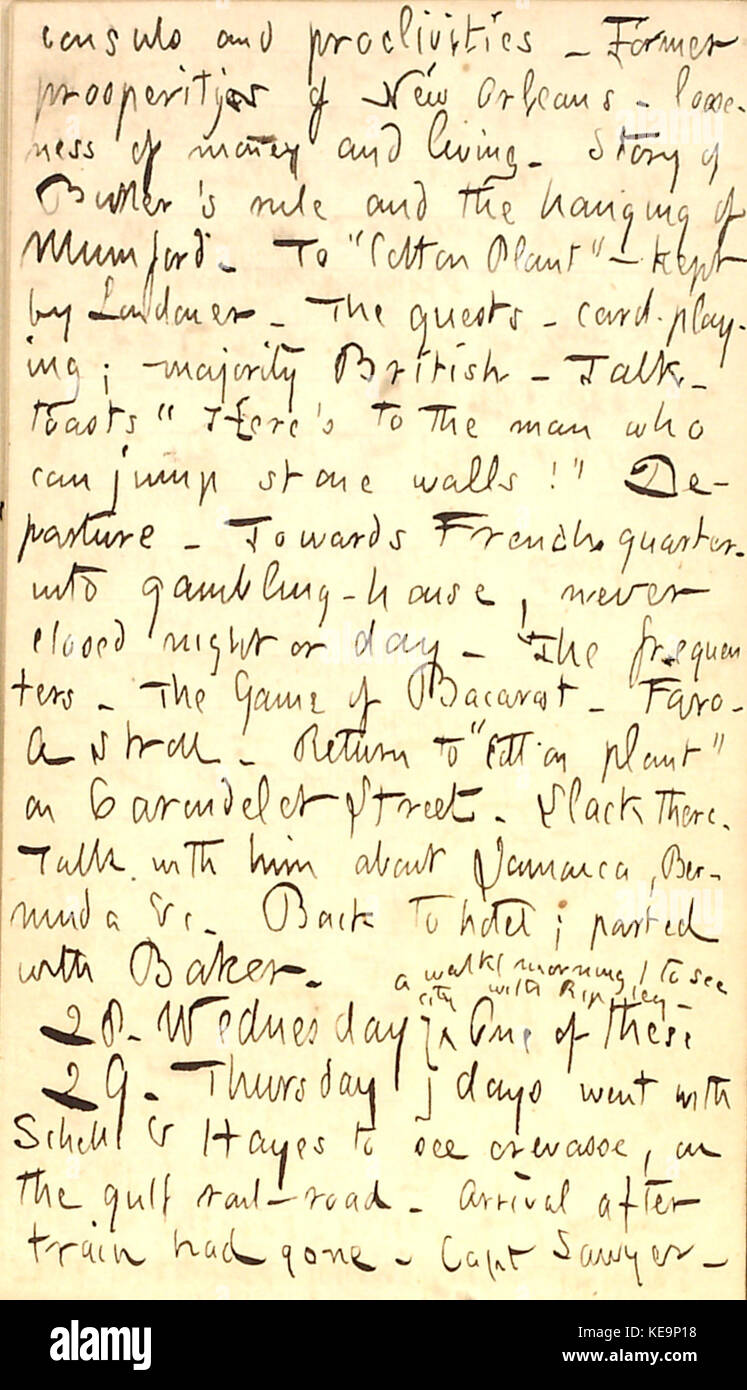 consuls and proclivities – Former
prosperity of New Orleans – loose-
ness of money and living – Story of
Butler's rule and the hanging of
Mumford. – To "Cotton Plant" – kept
by Landauer – The guests – card-play-
ing; majority British – Talk –
toasts "Here's to the man who
can jump stone walls!" De-
parture – Towards French quarter –
into gambling-house, never
closed night or day – The frequen
ters – The Game of Bacarat – Faro –
A stroll – Return to "Cotton plant"
on Carondelet Street – Slack there.
Talk with him about Jamaica, Ber-
muda &c. Back to hotel; parted
with Baker –
a walk (morning) to see
city with Ripley –
28. Wednesday } One of these
29. Thursday } days went with
Schell & Hayes to see crevasse, on
the gulf rail-road – Arrival after
train had gone – Capt Sawyer –
alamy
Image ID: KE9P18
www.alamy.com